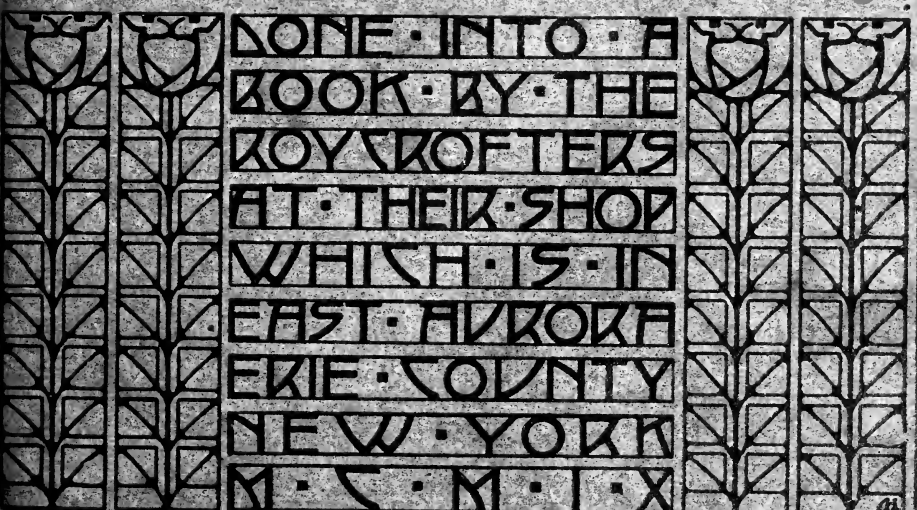 DONE · INTO · A
BOOK · BY · THE
ROYCROFTERS
AT · THEIR · SHOP
WHICH · IS · IN
EAST · AVRORA
ERIE · COVNTY
NEW · YORK
M · C · M · I X